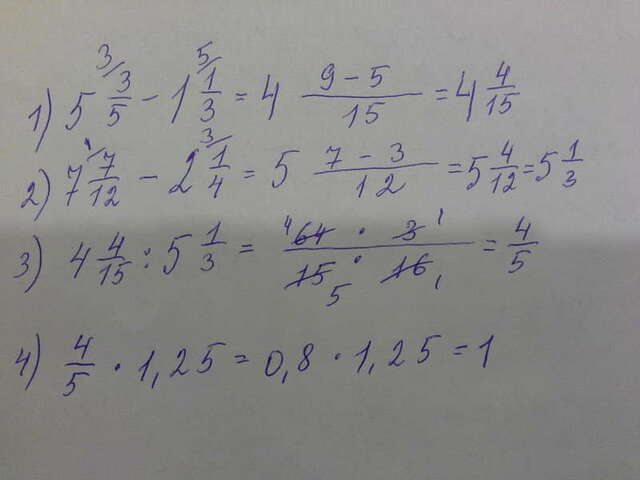 1) 5 3/5 - 1 1/3 = 4 (9 - 5)/15 = 4 4/15
2) 7 7/12 - 2 1/4 = 5 (7 - 3)/12 = 5 4/12 = 5 1/3
3) 4 4/15 : 5 1/3 = (64 · 3)/(15 · 16) = 4/5
4) 4/5 · 1,25 = 0,8 · 1,25 = 1